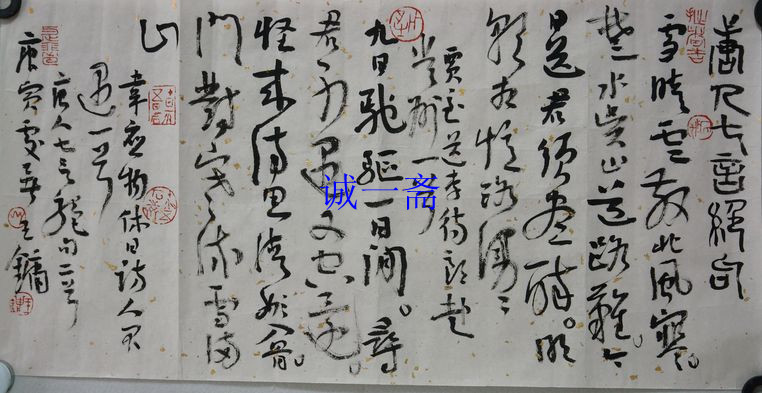 唐人七言絕句
雪晴雲散北風寒。
楚水吳山道路難。今
日送君須盡醉。明
朝相憶路漫〻
賈至送李侍郎赴
常州一首
九日馳驅一日閒。尋
君不遇又空還。
怪來詩思清人骨。
門對寒流雪滿
山
韋應物休日訪人不
遇一首
唐人七言絕句二首
庚寅處暑 王鏞
诚一斋